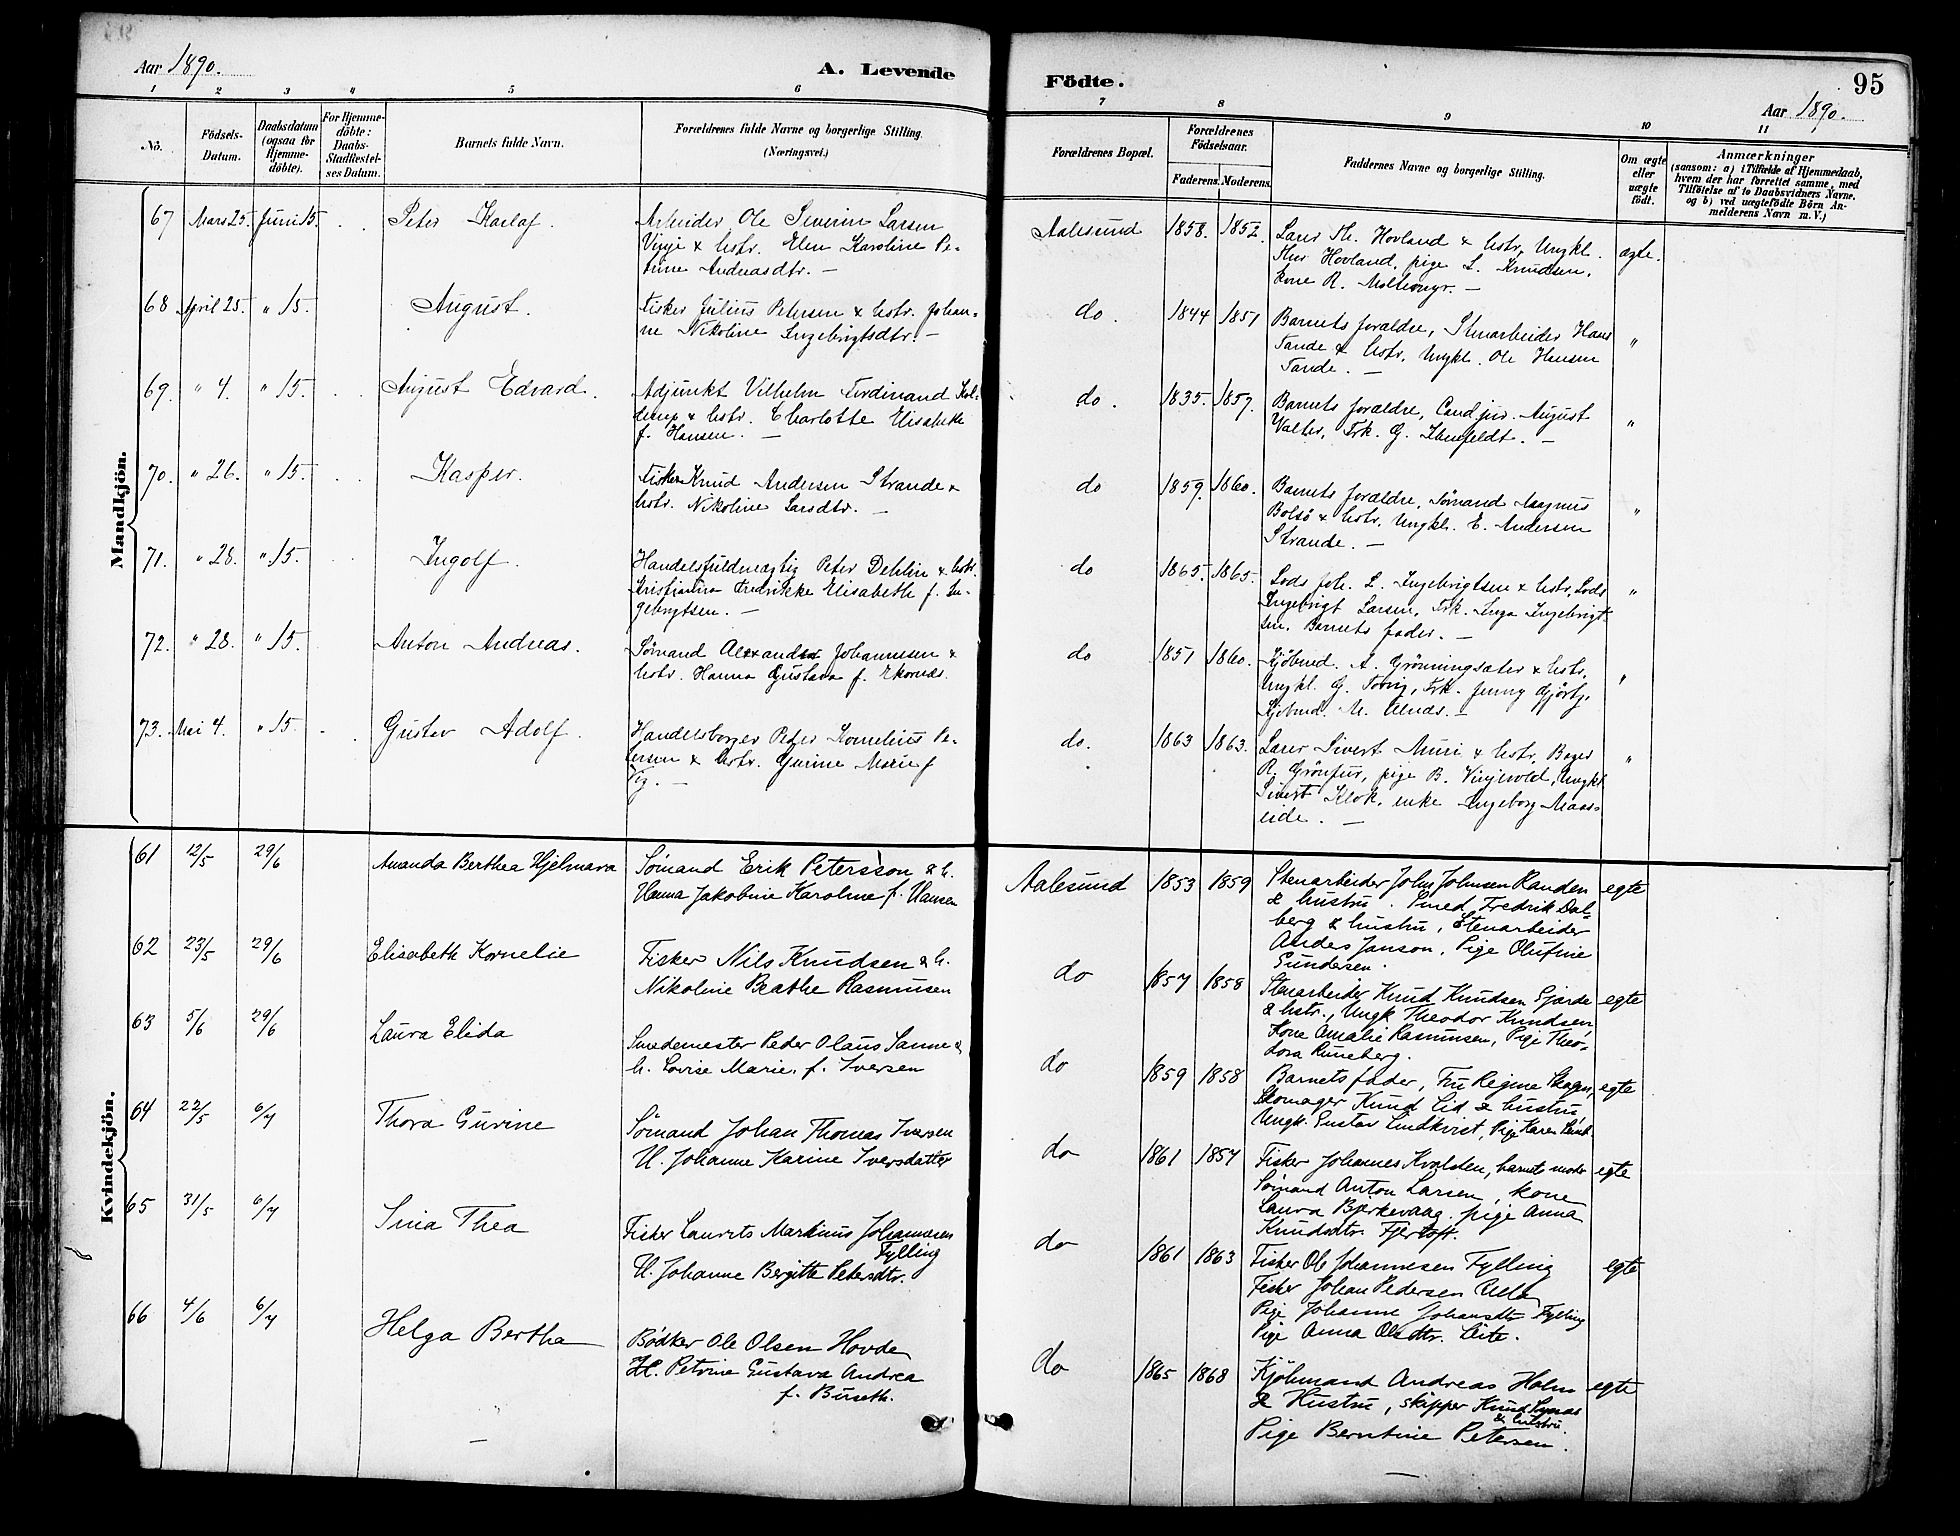 Aar 1890.
A. Levende
1 2 3 4 5 6
No.
Födsels-
Datum.
Daabsdatum
(ogsaa for
Hjemme-
döbte).
For Hjemme-
döbte:
Daabs-
Stadfæstel-
ses Datum.
Barnets fulde Navn.
Forældrenes fulde Navne og borgerlige Stilling.
(Næringsvei.)
Mandkjön.
67 Mars 25. Juni 15. Peter Karlaf. Arbeider Ole Severin Larsen
& hstr. Elen Karoline Pe-
trine Andreasdtr. —
68 April 25. " 15. August. Fisker Julius Petersen & hstr. Johan-
ne Nikoline Ingebrigtsdtr. —
69. " 4. " 15. August Edvard. Adjunkt Vilhelm Ferdinand
& hstr. Charlotte Elisabeth
f. Hansen. —
70. " 26. " 15. Kasper. Fisker Knud Andersen Strande &
hstr. Nikoline Larsdtr. —
71. " 28. " 15. Ingolf. Handelsfuldmægtig Peter Dehlin & hstr.
Kristianna Fredrikke Elisabeth f. In-
gebrigtsen. —
72. " 28. " 15. Anton Andreas. Sömand Alexander Johannesen &
hstr. Hanna Gustava f. Ekornæs.
73. Mai 4. " 15. Gustav Adolf. Handelsborger Peder Kornelius Pe-
tersen & hstr. Gurine Marie f
Vig. —
Kvindekjön.
61 12/5 29/6 Amanda Berthea Hjelmara Sömand Erik Petersson & h.
Hanna Jakobine Karoline f. Hansen
62 23/5 29/6 Elisabeth Kornelie Fisker Nils Knudsen & h.
Nikoline Beathe Rasmusen
63 5/6 29/6 Laura Elida Smedemester Peder Olaus Sanne &
h. Lovise Marie, f. Iversen
64 22/5 6/7 Thora Gurine Sömand Johan Thomas Iversen
H. Johanne Karine Iversdatter
65 31/5 6/7 Sina Thea Fisker Laurits Martinus Johannesen
Fylling
H. Johanne Bergitte Petersdtr.
66 4/6 6/7 Helga Bertha Bödker Ole Olsen Hovde
H. Petrine Gustava Andrea
f. Buseth.
—
Födte.
95
Aar 1890.
7 8 9 10 11
Forældrenes Bopæl.
Forældrenes
Födselsaar.
Faderens. Moderens.
Faddernes Navne og borgerlige Stilling.
Om ægte
eller
uægte
födt.
Anmærkninger
(saasom: a) i Tilfælde af Hjemmedaab,
hvem der har forrettet samme, med
Tilföielse af to Daabsvidners Navne.
og b) ved uægtefödte Börn An-
melderens Navn m. V.)
Aalesund 1858. 1852. Larer Th. Hovland & hstr, Ungkl. ægte.
Hovland, pige L. Knudsen,
kone R. —
do. 1844 1851 Barnets forældre, Stenarbeider Hans "
Tande & hstr. Ungkl. Ole Hansen
Tande. —
do. 1835. 1857. Barnets forældre, Cand jur. August "
Valter, Frk. G. —
do 1859. 1860. Barnets forældre, Sömand Magnus "
Bolsö & hstr. Ungkl. E. Andersen
Strande. —
do 1865. 1865. Lods Joh. L. Ingebrigtsen & hstr, Lods "
Ingebrigt Larsen, Frk. Inga Ingebrigt-
sen. Barnets fader. —
do 1851 1860. Kjöbmd. A. Grönningsæter & hstr, "
Ungkl. G. Frk. Jenny
Kjöbmd. M. —
do. 1863 1863. Larer Sivert Muri & hstr, Bager "
R. pige B. Vinjevold, Ungkl
Sivert Klok, enke Ingeborg Maas-
eide. —
Aalesund 1853 1859 Stenarbeider John Johnsen Randen egte
& hustru. Smed Fredrik Dal-
berg & hustru, Stenarbeider
Andes Janson, Pige Olufine
Gundersen.
do 1857 1858 Stenarbeider Knud Knudsen Gjærde egte
& hstr., Ungk. Theodor Knudsen,
Kone Amalie Rasmusen, Pige Theo-
dora Runeberg.
do 1859 1858 Barnets fader, Fru Regine egte
Skomager Knud Lid & hustru,
Ungk. Gustav Lindkvist, Pige Karen
do 1861 1857 Fisker Johannes Kvalsten, barnets moder egte
Sömand Anton Larsen, kone
Laura Bjerkevaag, pige Anna
Knudsdtr. Fjertoft.
do 1861 1863 Fisker Ole Johannesen Fylling egte
Fisker Johan Pedersen
Pige Johanne Johansdtr Fylling
Pige Anna Olsdtr. Leite.
do 1865 1868 Kjöbmand Andreas Holm egte
& Hustru, skipper Knud
& hustru
Pige Berntine Petersen.
—